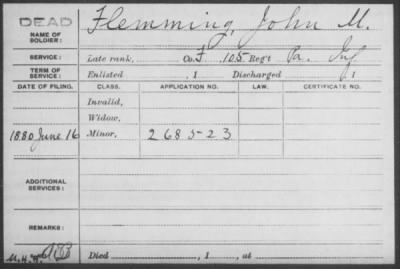 DEAD
NAME OF SOLDIER: Flemming, John M.
SERVICE: Late rank, Co. F, 105 Reg't Pa. Inf
TERM OF SERVICE: Enlisted , 1 Discharged , 1
DATE OF FILING. CLASS. APPLICATION NO. LAW. CERTIFICATE NO.
Invalid,
Widow,
1880 June 16 Minor, 268523
ADDITIONAL SERVICES:
REMARKS:
Died , 1 , at